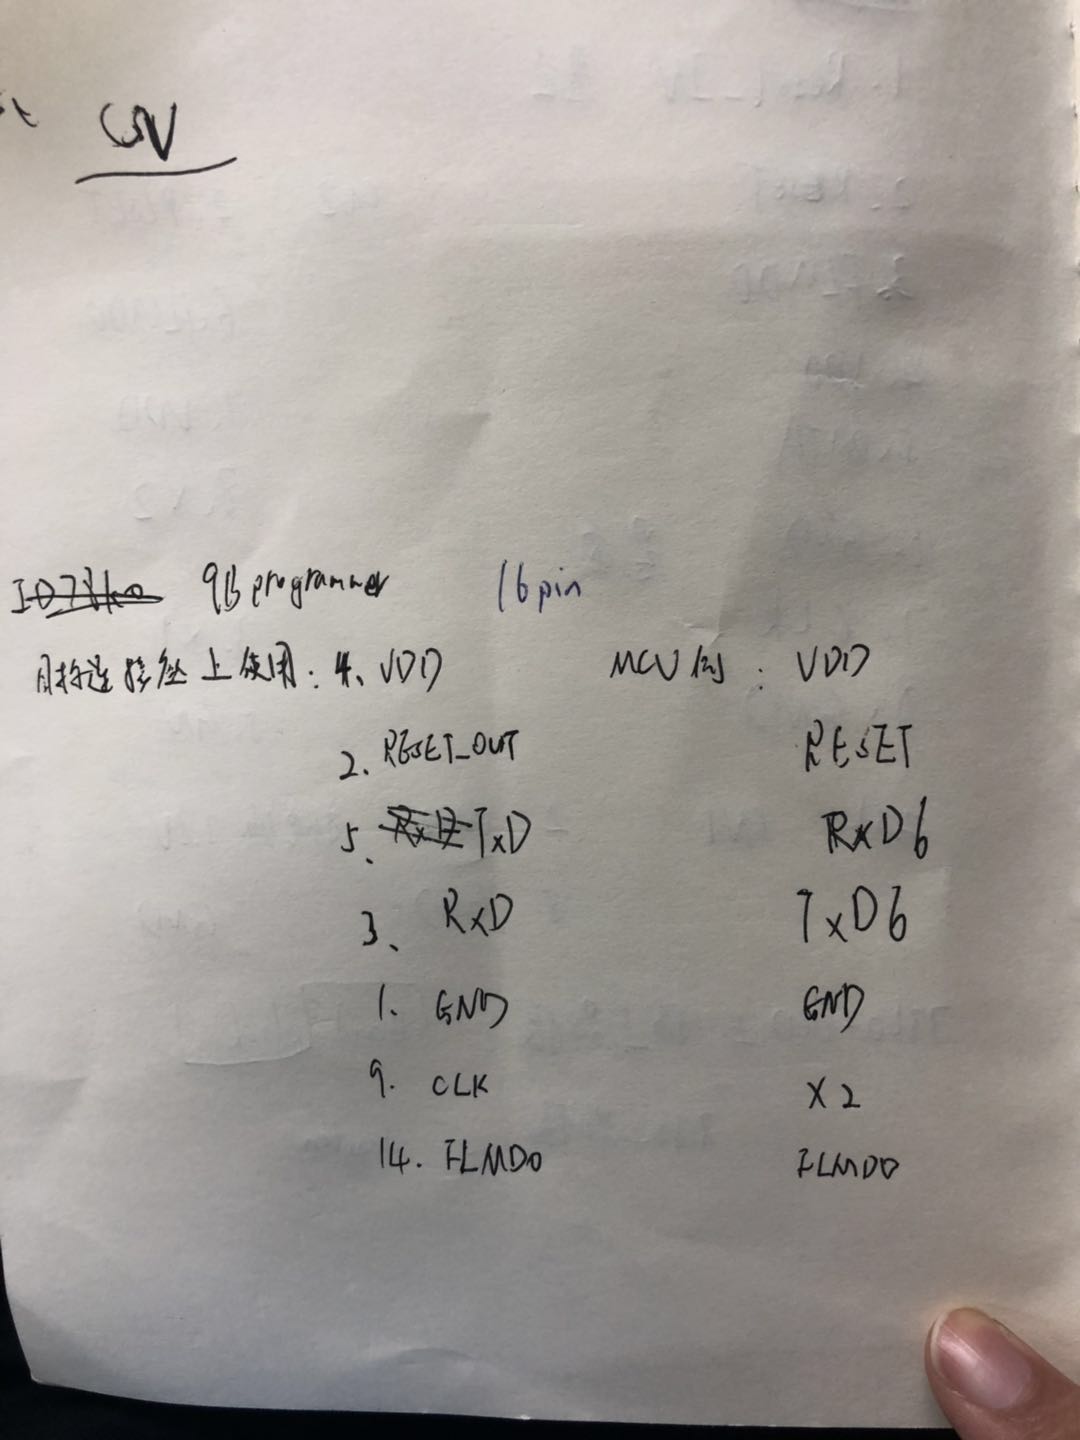 GV
programmer 16pin
目标连接座上使用: 4、VDD MCU侧: VDD
2. RESET_OUT RESET
5、 TxD RxD6
3、 RxD TxD6
1. GND GND
9. CLK X2
14. FLMD0 FLMD0